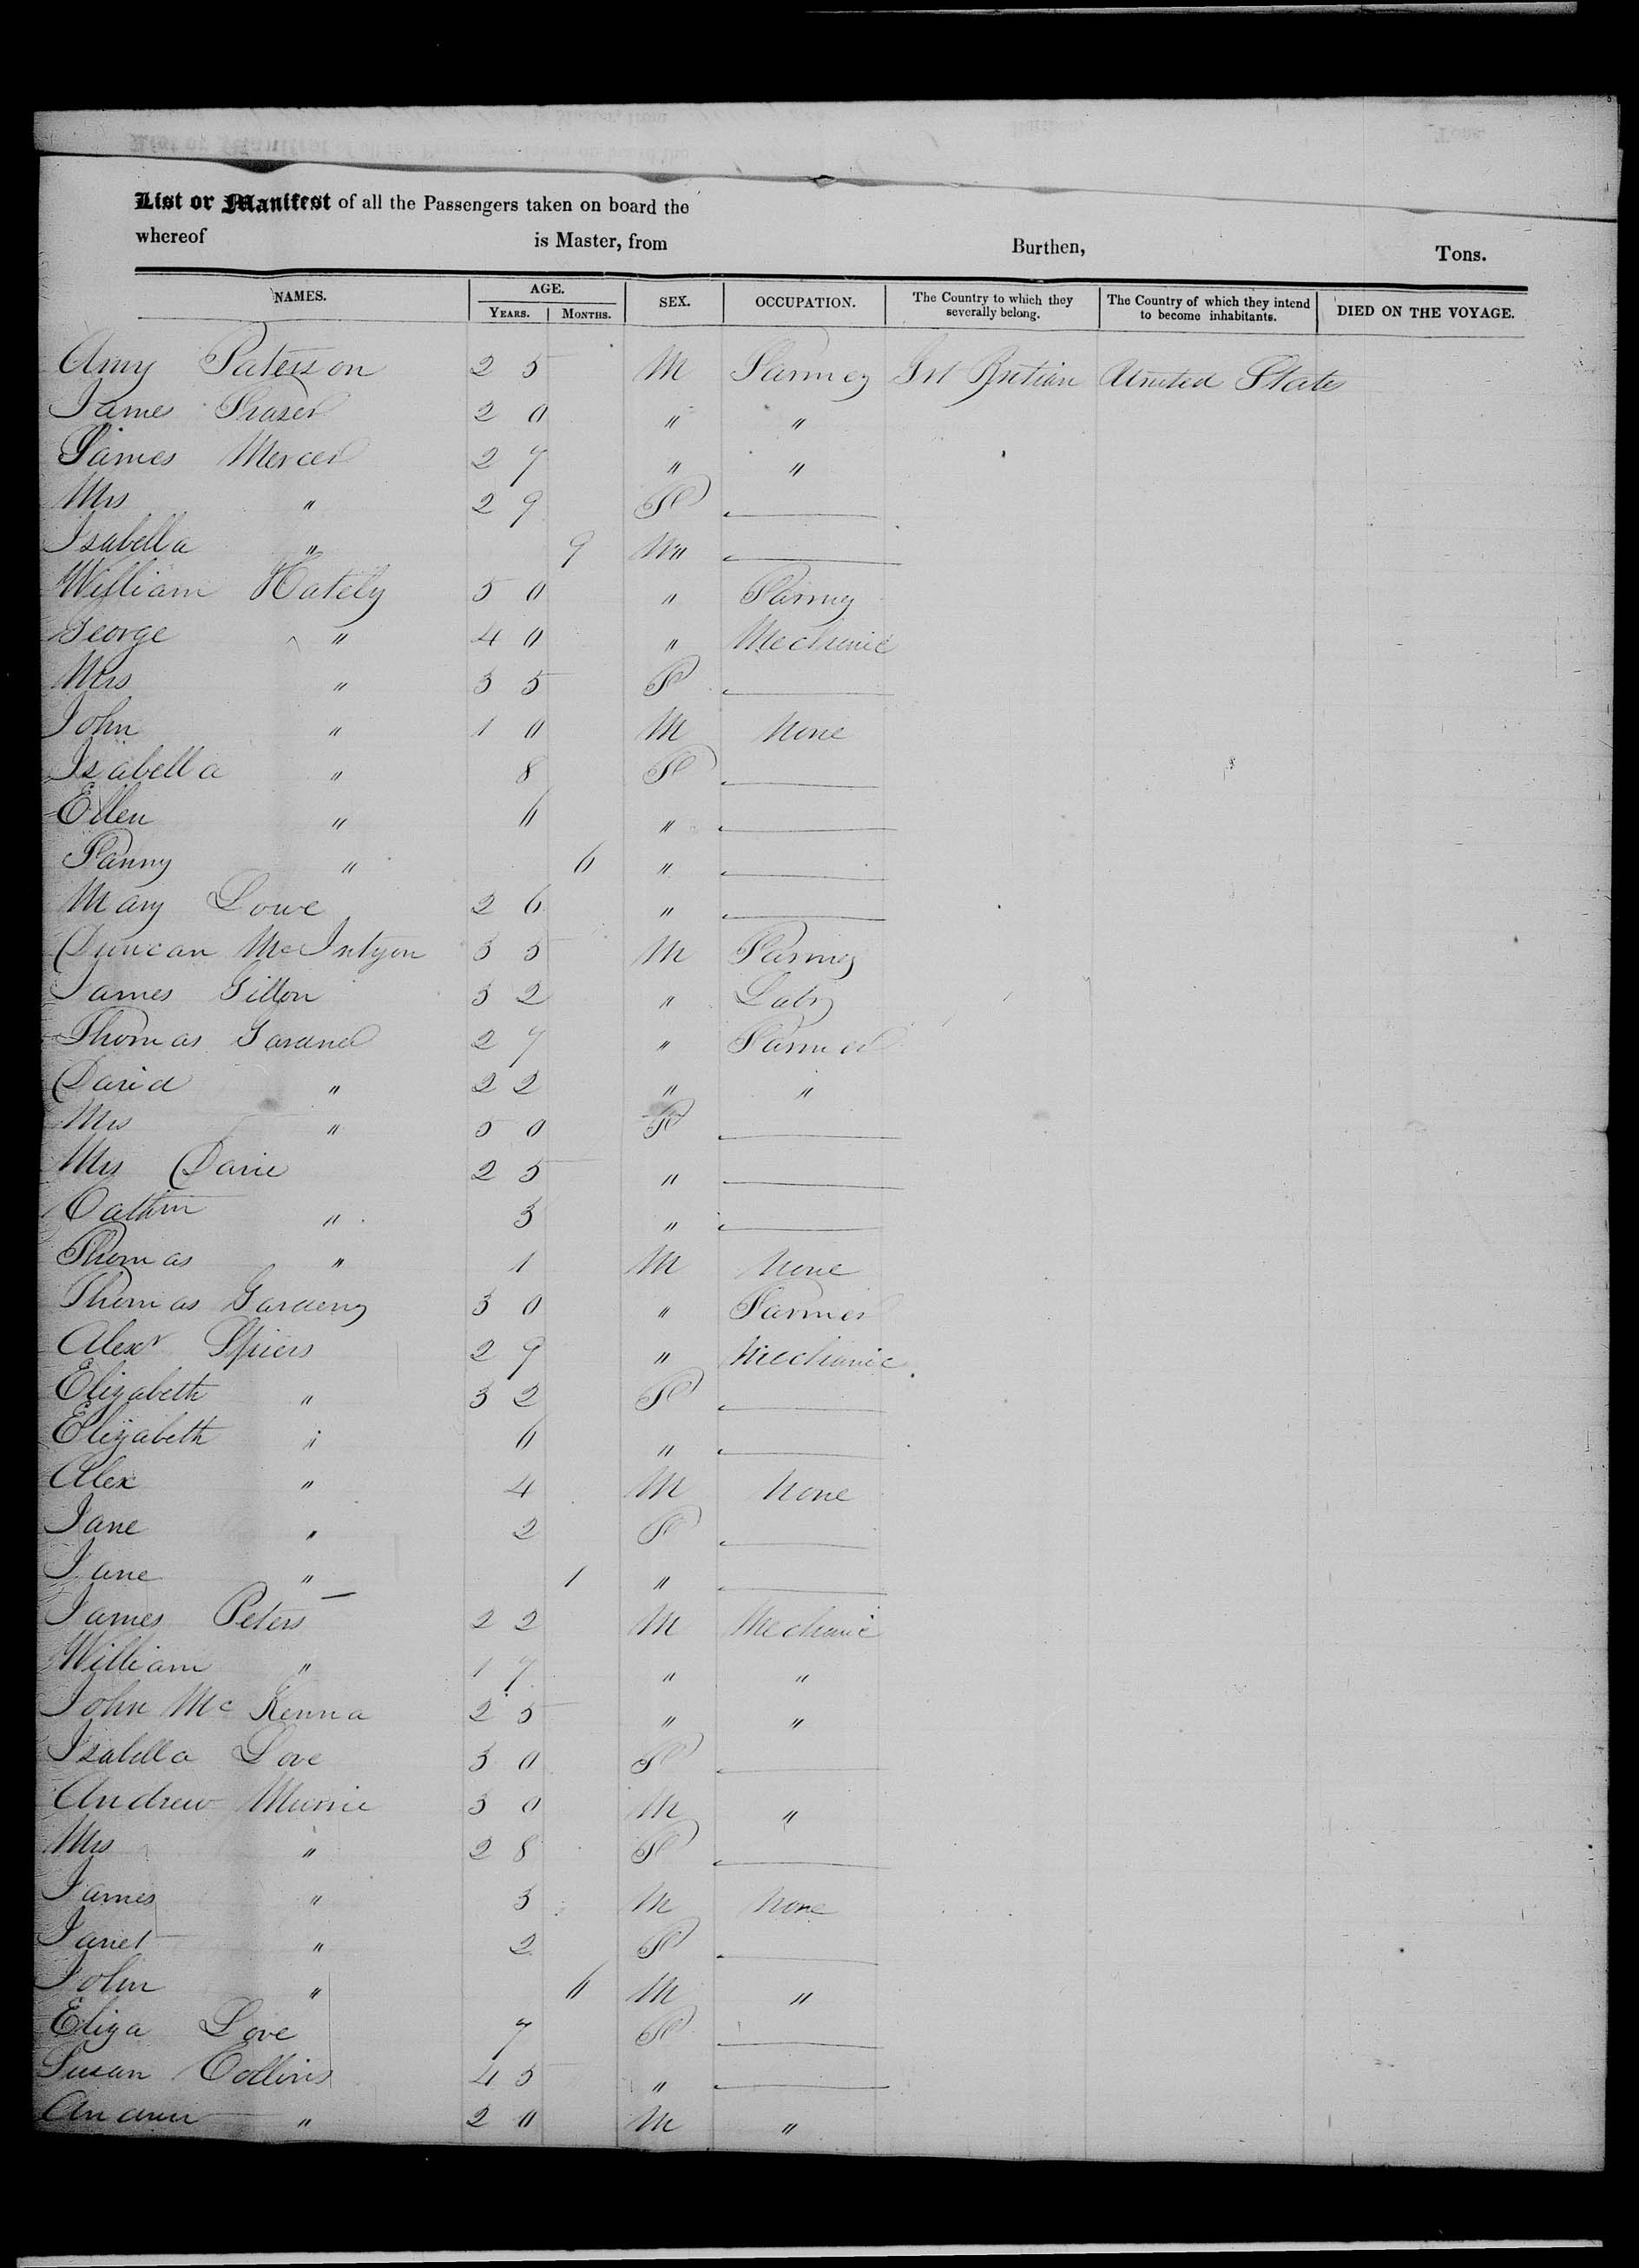 List or Manifest of all the Passengers taken on board the
whereof is Master, from Burthen, Tons.
NAMES. AGE. YEARS. MONTHS. SEX. OCCUPATION. The Country to which they severally belong. The Country of which they intend to become inhabitants. DIED ON THE VOYAGE.
Amy Paterson 25 M Farmer Grt Britian United States
James Fraser 20 " "
James Mercer 27 " "
Mrs " 29 F
Isabella " 9 M"
William Hately 50 " Farmer
George " 40 " Mechanic
Mrs " 35 F
John " 10 M None
Isabella " 8 F
Ellen " 6 "
Fanny " 6 "
Mary Lowe 26 "
Duncan McIntyre 35 M Farmer
James Gitton 32 " Labr
Thomas Gardner 27 " Farmer
David " 22 " "
Mrs " 50 F
Mrs Davie 25 "
Cathrin " 3 "
Thomas " 1 M None
Thomas Gardener 30 " Farmer
Alexr Spiers 29 " Mechanic
Elizabeth " 32 F
Elizabeth " 6 "
Alex " 4 M None
Jane " 2 F
Jane " 1 "
James Peters 22 M Mechanic
William " 17 " "
John McKenna 25 " "
Isabella Love 30 F
Andrew Murrie 30 M "
Mrs " 28 F
James " 3 M None
Janet " 2 F
John " 6 M "
Eliza Love 7 F
Susan Collins 45 "
" 20 M "